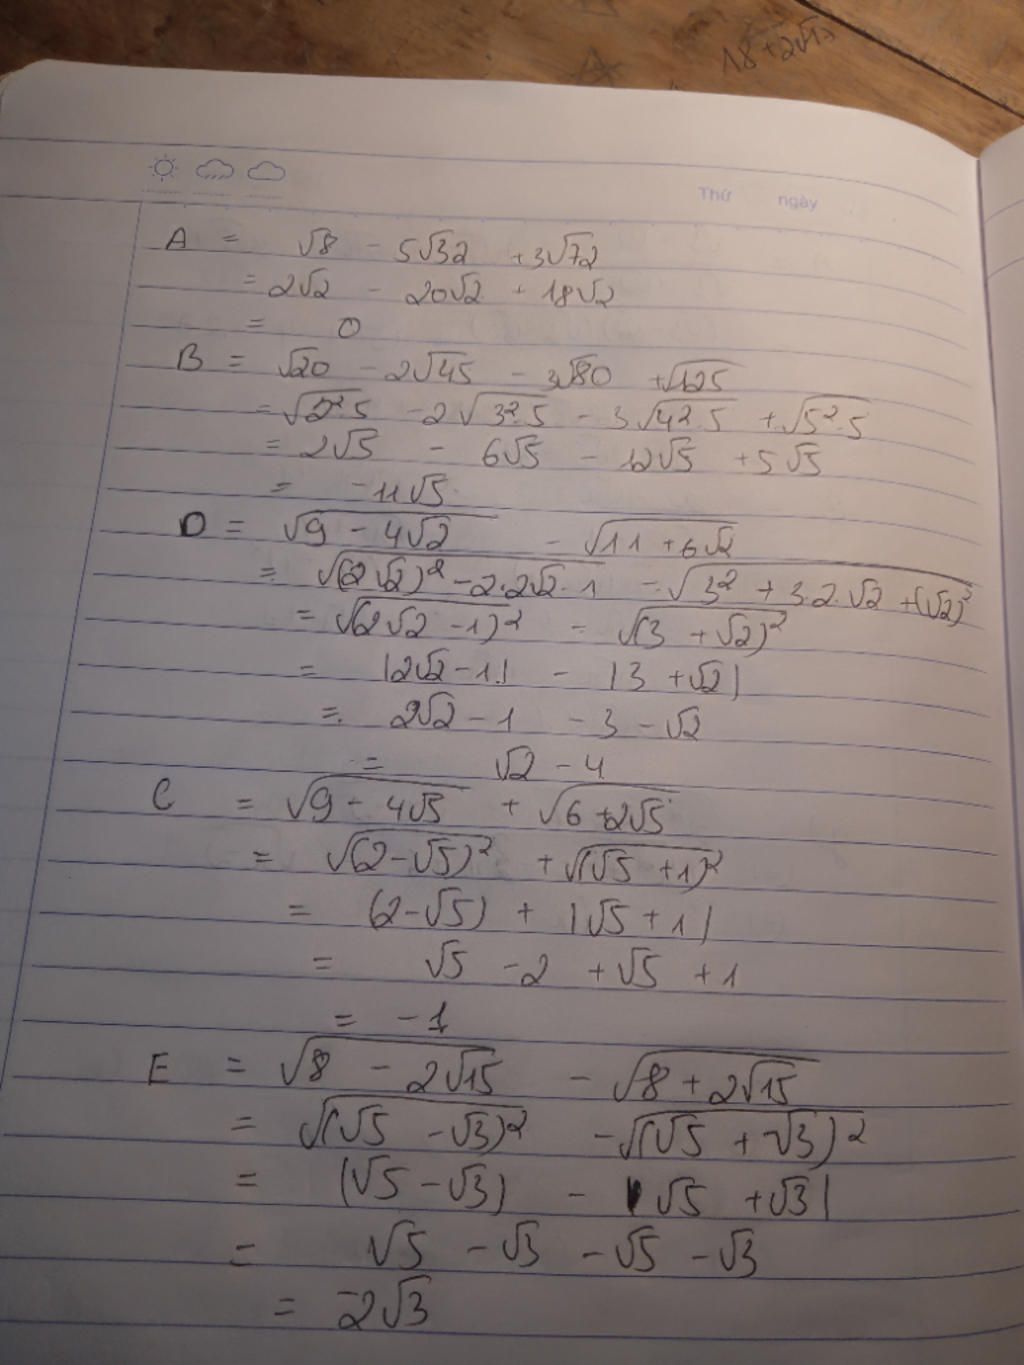 18 + 2√12
Thứ ngày
A = √8 - 5√32 + 3√72
= 2√2 - 20√2 + 18√2
= 0
B = √20 - 2√45 - 3√80 + √125
= √2².5 - 2√3².5 - 3√4².5 + √5².5
= 2√5 - 6√5 - 12√5 + 5√5
= -11√5
D = √9 - 4√2 - √11 + 6√2
= √(2√2)² - 2.2√2.1 - √3² + 3.2.√2 + (√2)²
= √(2√2 - 1)² - √(3 + √2)²
= |2√2 - 1| - |3 + √2|
= 2√2 - 1 - 3 - √2
= √2 - 4
C = √9 - 4√5 + √6 + 2√5
= √(2 - √5)² + √(√5 + 1)²
= (2 - √5) + |√5 + 1|
= √5 - 2 + √5 + 1
= -1
E = √8 - 2√15 - √8 + 2√15
= √(√5 - √3)² - √(√5 + √3)²
= (√5 - √3) - |√5 + √3|
= √5 - √3 - √5 - √3
= -2√3